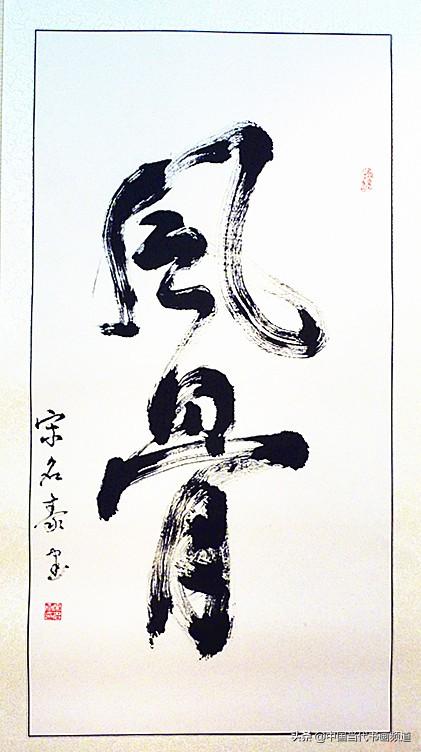 风骨
宋名豪书
头条 @中国当代书画频道